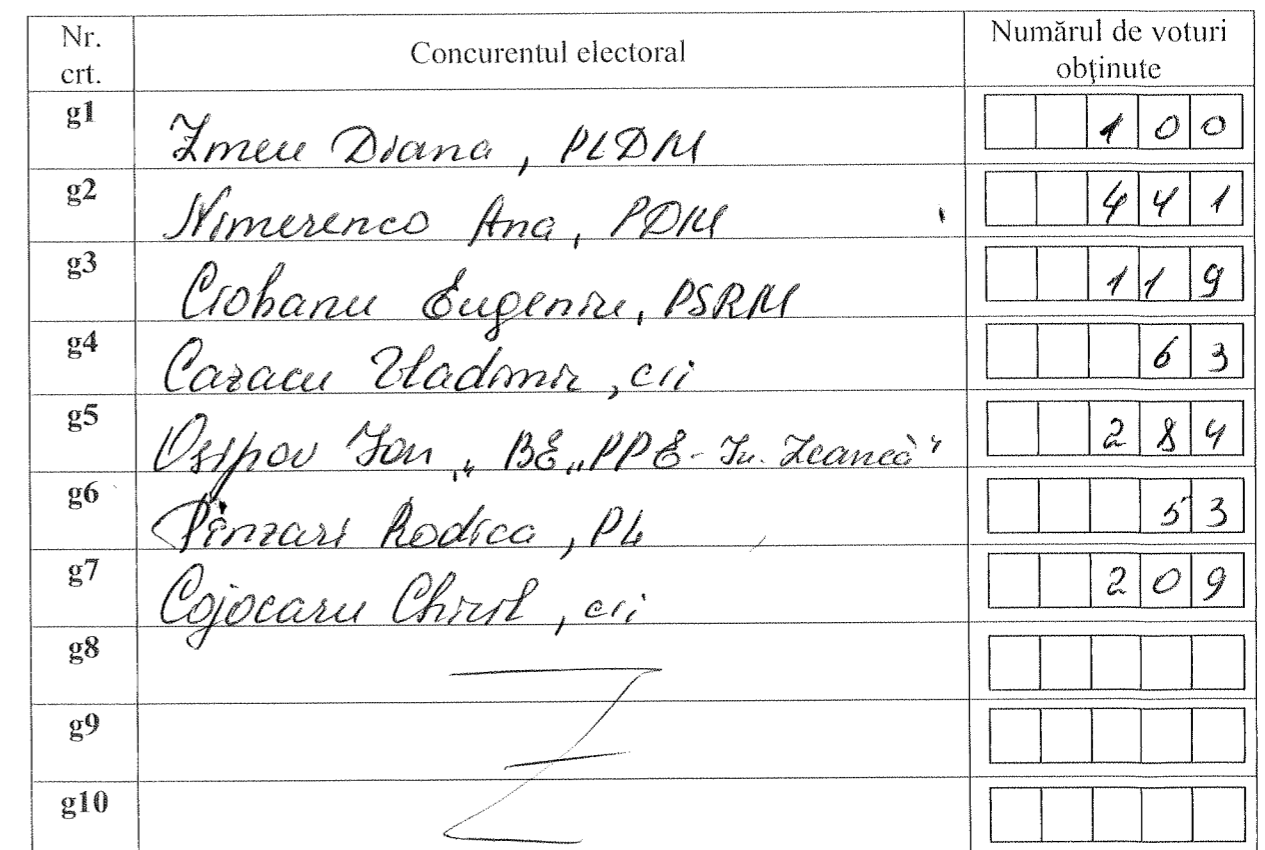 Nr. crt. Concurentul electoral Numărul de voturi obţinute
g1 Zmeu Diana, PLDM 100
g2 Nimerenco Ana, PDM 441
g3 Ciobanu Eugeniu, PSRM 119
g4 Caracu Vladimir, cii 63
g5 Osipov Ion, BE„PPE-Iu. Leancă" 284
g6 Pînzari Rodica, PL 53
g7 Cojocaru Chiril, cii 209
g8
g9
g10